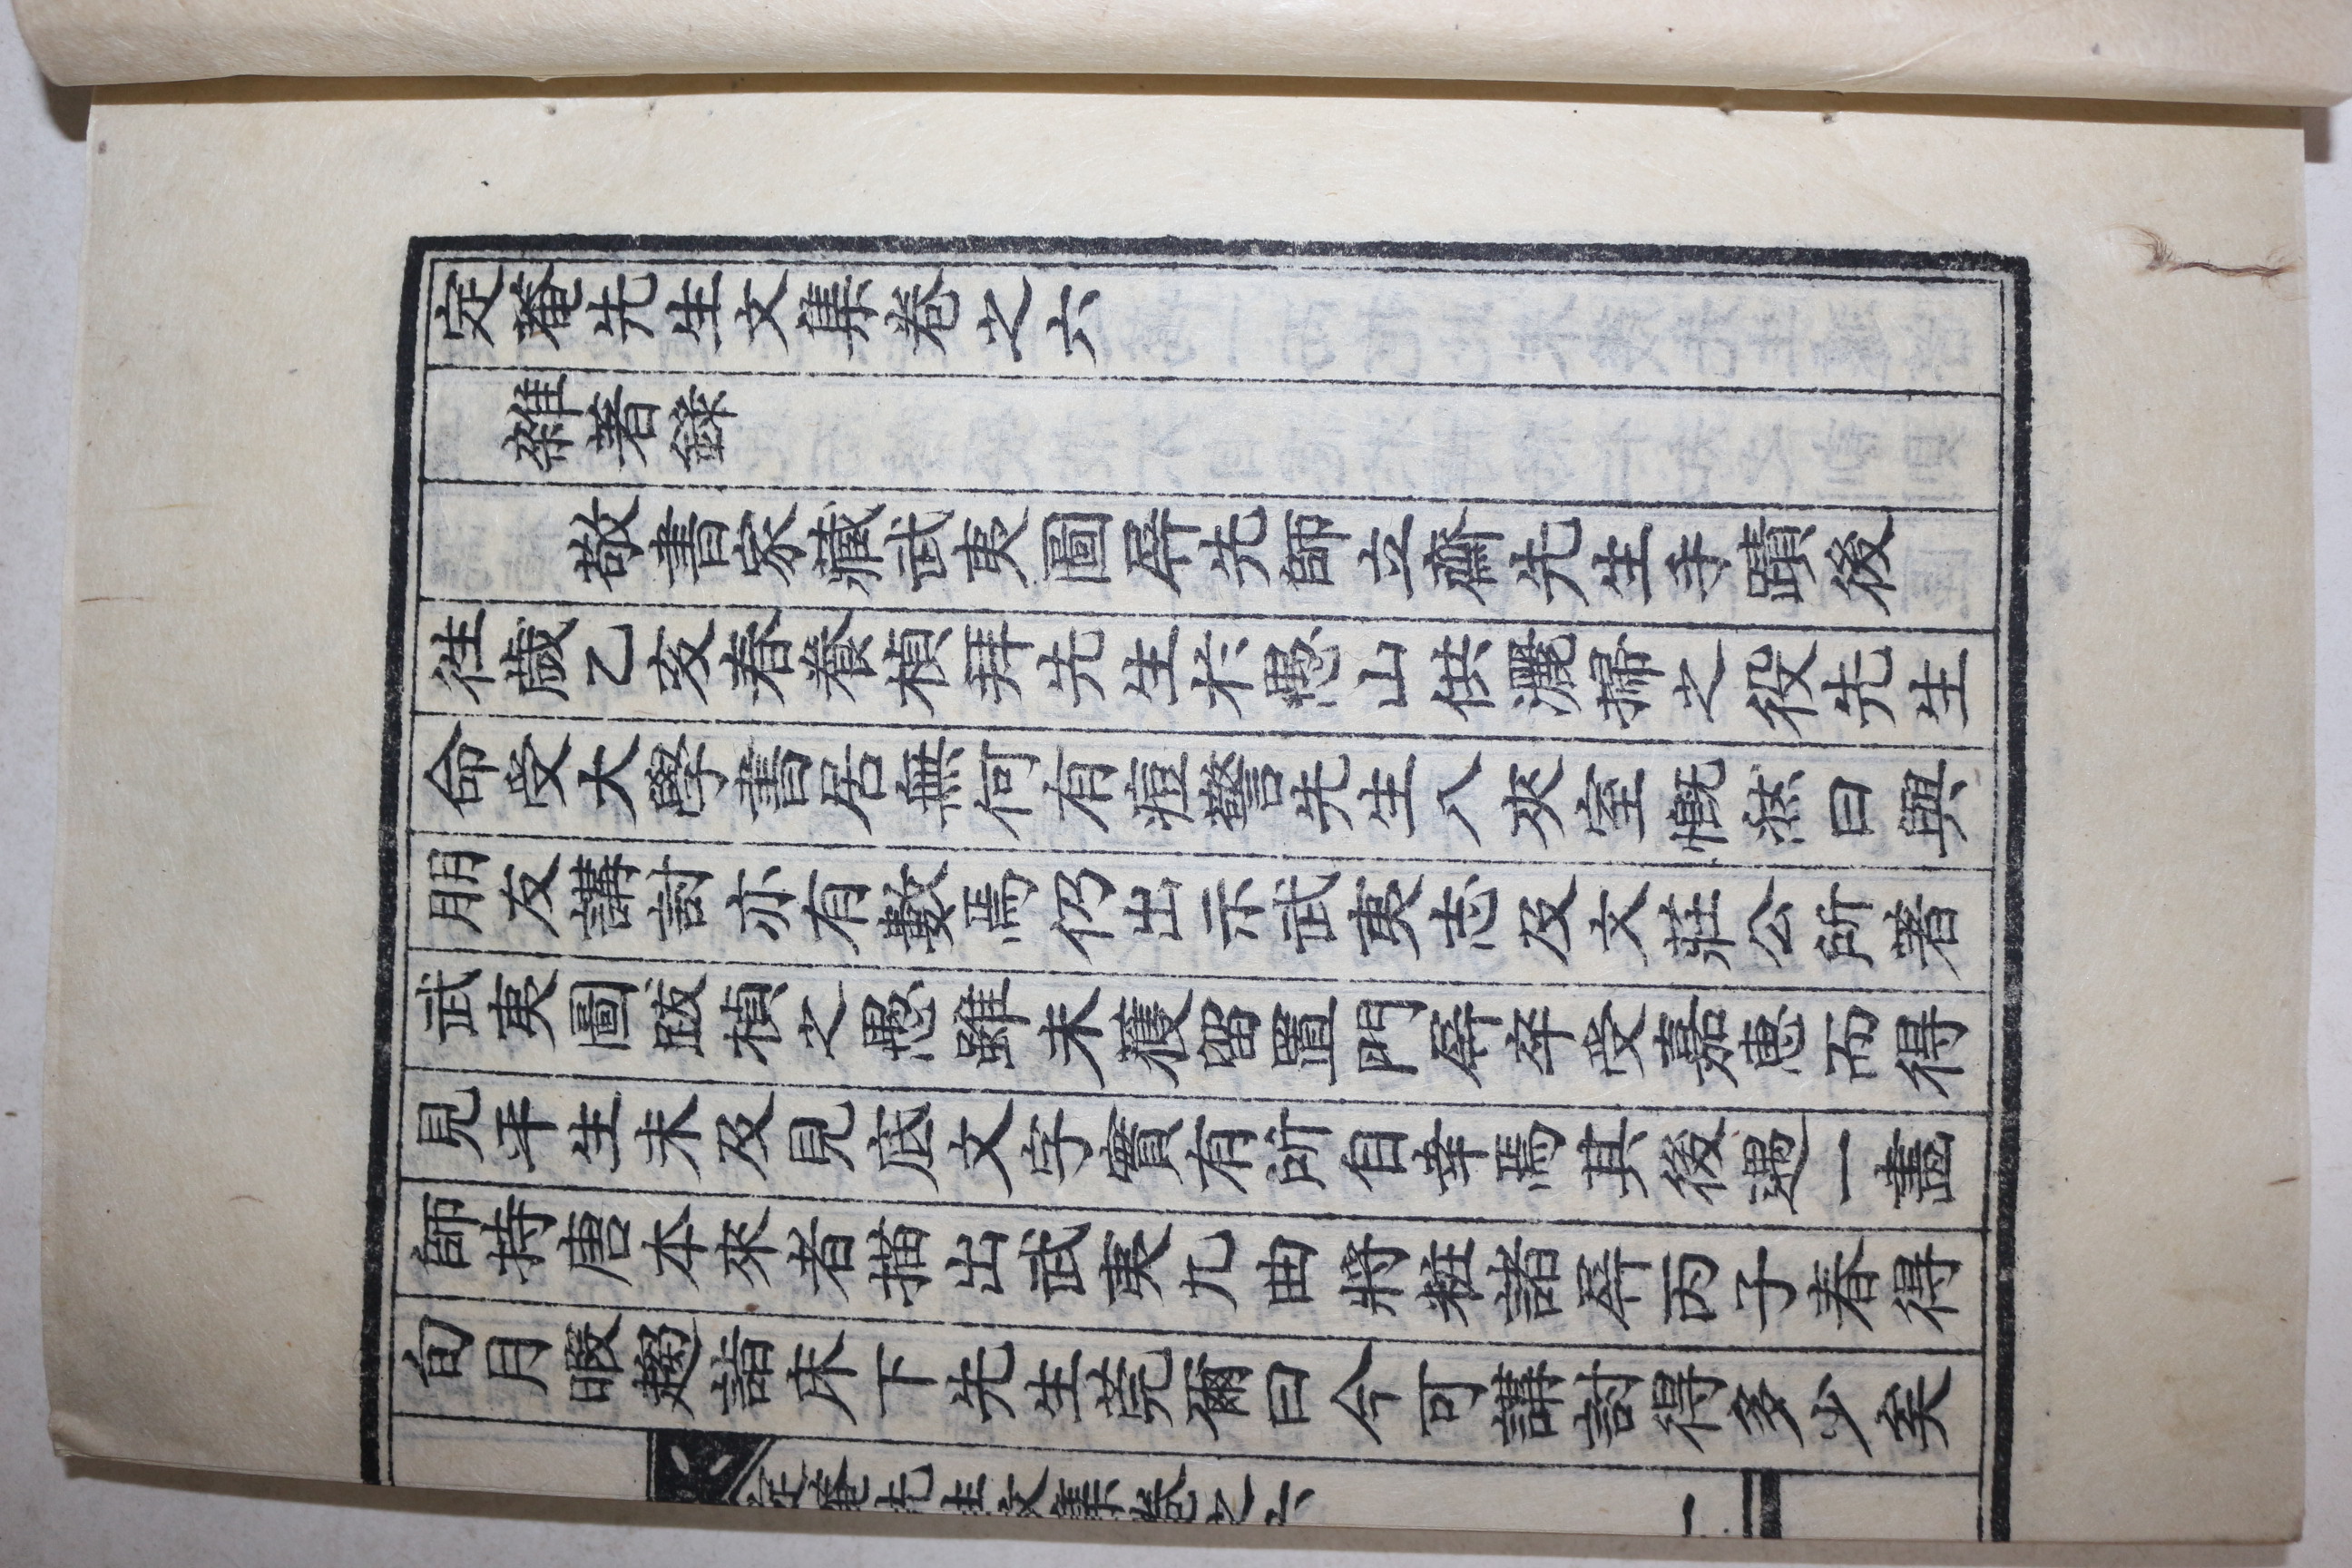 定菴先生文集卷之六
雜著錄
敬書家藏武夷圖屛先師立齋先生手蹟後
往歲乙亥春養楨拜先生於愚山供灑掃之役先生
命受大學書居無何有痘警先生入夾室慨然曰與
朋友講討亦有數焉仍出示武夷志及文莊公所著
武夷圖跋楨之愚雖未獲留置門屛卒受嘉惠而得
見年生未及見底文字實有所自幸焉其後遇一畵
師持唐本來者描出武夷九曲將粧諸屛丙子春得
旬月暇趨詣床下先生莞爾曰今可講討得多少矣
定菴先生文集卷之六
一